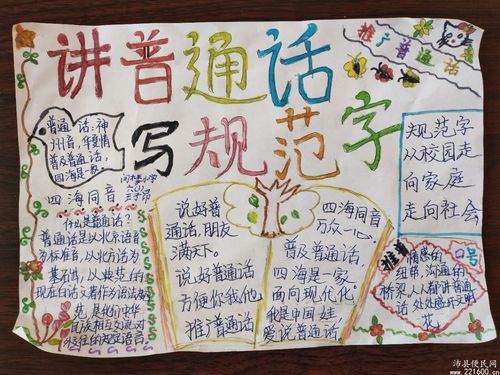 讲普通话
写规范字
推广普通话
普通话:神
州音,华夏情
普及普通话,
四海是一家
四海同音
什么是普通话?
普通话是以北京语音
为标准音,以北方话为
基石,以典范的
现在白话文著作为语法规
范,是我们中华
民族相互交通对
说好普
通话,朋友
满天下。
说好普通话
方便你我他
推广普通话
四海同音
万众一心。
普及普通话,
四海是一家
面向现代化。
我是中国娃,
爱说普通话。
规范字
从校园走
向家庭
走向社会
情感的
纽带,沟通的
桥梁,人人都讲普通
话,处处盛开文明
花
沛县便民网
www.221600.cn